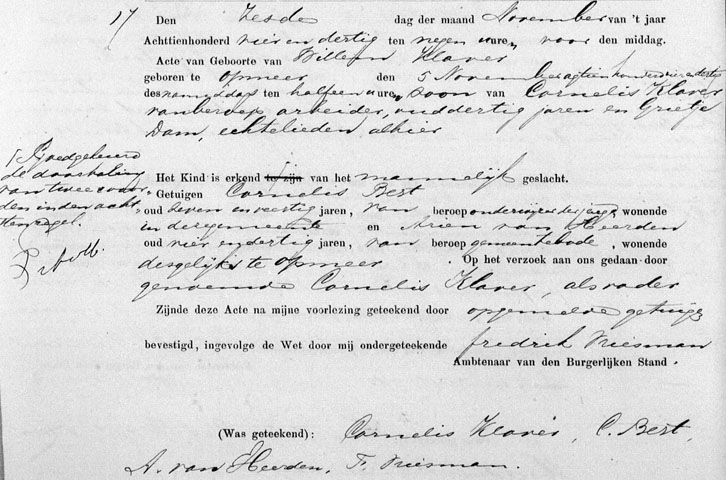 17 Den Zesde dag der maand November van 't jaar
Achttienhonderd vier en dertig ten negen ure, voor den middag.
Acte van Geboorte van Willem Klaver
geboren te Opmeer den 5 November achtienhonderd vier en dertig
des namiddags ten half een ure, zoon van Cornelis Klaver
van beroep arbeider, oud dertig jaren en Grietje
Dam, echtelieden alhier
Het Kind is erkend te zijn van het mannelijk geslacht.
Getuigen Cornelis Bert
oud zeven en veertig jaren, van beroep onderwijzer der jeugd, wonende
in deze gemeente en Arien van Heerden
oud vier en dertig jaren, van beroep gemeentebode, wonende
desgelijks te Opmeer. Op het verzoek aan ons gedaan door
genoemde Cornelis Klaver, als vader
Zijnde deze Acte na mijne voorlezing geteekend door opgemelde getuigen
bevestigd, ingevolge de Wet door mij ondergeteekende Fredrik Niesman
Ambtenaar van den Burgerlijken Stand.
(Was geteekend): Cornelis Klaver, C. Bert,
A. van Heerden, F. Niesman.
Goedgekeurd
de doorhaling
van twee woor-
den in den acht-
sten regel.